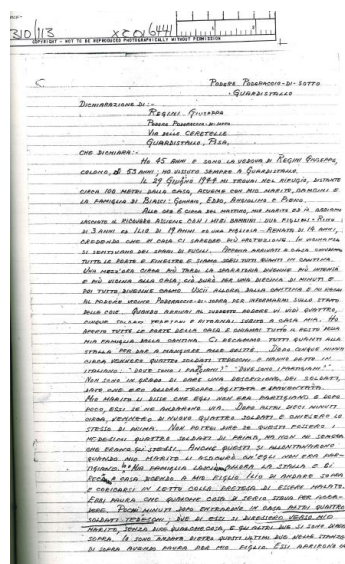 310/113
COPYRIGHT - NOT TO BE REPRODUCED PHOTOGRAPHICALLY WITHOUT PERMISSION
PODERE PODERACCIO-DI-SOTTO
GUARDISTALLO
DICHIARAZIONE DI :-
REGINI GIUSEPPA
PODERE PODERACCIO-DI-SOTTO
VIA DELLE CERETELLE
GUARDISTALLO, PISA,
CHE DICHIARA:-
HO 45 ANNI E SONO LA VEDOVA DI REGINI GIUSEPPE,
COLONO, DI 53 ANNI; HO VISSUTO SEMPRE A GUARDISTALLO.
IL 29 GIUGNO 1944 MI TROVAI NEL RIFUGIO, DISTANTE
CIRCA 100 METRI DALLA CASA, ASSIEME CON MIO MARITO, BAMBINI E
LA FAMIGLIA DI BIASCI: GENNARI, EBRO, ANGIOLINO E PIERO.
ALLE ORE 6 CIRCA DEL MATTINO, MIO MARITO ED IO, ABBIAMO
LASCIATO IL RICOVERO ASSIEME CON I MIEI BAMBINI: DUE FIGLIUOLI - RINO
DI 3 ANNI ED ILIO DI 19 ANNI ED UNA FIGLIOLA - RENATA DI 14 ANNI,
CREDENDO CHE IN CASA CI SAREBBE PIÙ PROTEZIONE. IN VICINANZA
SI SENTIVANO DEI SPARI DI FUCILI. APPENA ARRIVATI A CASA CHIUDEMMO
TUTTE LE PORTE E FINESTRE E SIAMO SCESI TUTTI QUANTI IN CANTINA.
UNA MEZZ'ORA CIRCA PIÙ TARDI LA SPARATORIA DIVENNE PIÙ INTENSA
E PIÙ VICINA ALLA CASA, CIÒ DURÒ PER UNA DIECINA DI MINUTI E
POI TUTTO DIVENNE CALMO. USCII ALLORA DALLA CANTINA E MI RECAI
AL PODERE VICINO PODERACCIO-DI-SOPRA PER INFORMARMI SULLO STATO
DELLE COSE. QUANDO ARRIVAI AL SUDDETTO PODERE VI VIDI QUATTRO,
CINQUE SOLDATI TEDESCHI E RITORNAI SUBITO A CASA MIA. HO
APERTO TUTTE LE PORTE DELLA CASA E CHIAMAI TUTTO IL RESTO DELLA
MIA FAMIGLIA DALLA CANTINA. CI RECAMMO TUTTI QUANTI ALLA
STALLA PER DAR A MANGIARE ALLE BESTIE. DOPO CINQUE MINUTI
CIRCA VENNERO QUATTRO SOLDATI TEDESCHI E HANNO DETTO IN
ITALIANO: "DOVE SONO I PARTIGIANI?" "DOVE SONO I PARTIGIANI?"
NON SONO IN GRADO DI DARE UNA DESCRIZIONE DEI SOLDATI,
DATO CHE ERO ALLORA TROPPO AGITATA E SPAVENTATA.
MIO MARITO LI DISSE CHE EGLI NON ERA PARTIGIANO E DOPO
POCO, ESSI SE NE ANDARONO VIA. DOPO ALTRI DIECI MINUTI
CIRCA, VENNERO DI NUOVO QUATTRO SOLDATI E CHIESERO LO
STESSO DI PRIMA. NON POTREI DIRE SE QUESTI FOSSERO I
MEDESIMI QUATTRO SOLDATI DI PRIMA, MA NON MI SEMBRA
CHE ERANO GLI STESSI. ANCHE QUESTI SI ALLONTANARONO
QUANDO MIO MARITO LI ASSICURÒ CH'EGLI NON ERA PAR-
TIGIANO. MIA FAMIGLIA LASCIÒ ALLORA LA STALLA E SI
RECÒ A CASA DICENDO A MIO FIGLIO ILIO DI ANDARE SOPRA
E CORICARSI IN LETTO COLLA PRETESA DI ESSERE MALATO.
EBBI PAURA CHE QUALCHE COSA DI SERIO STAVA PER ACCA-
DERE. POCHI MINUTI DOPO ENTRARONO IN CASA ALTRI QUATTRO
SOLDATI TEDESCHI; DUE DI ESSI SI DIRESSERO VERSO MIO
MARITO, SENZA DIRE QUALCHECOSA, E GLI ALTRI DUE SI SONO DIRETTI
SOPRA. IO SONO ANDATA DIETRO QUESTI ULTIMI DUE NELLA STANZA
DI SOPRA AVENDO PAURA PER MIO FIGLIO. ESSI APRIRONO